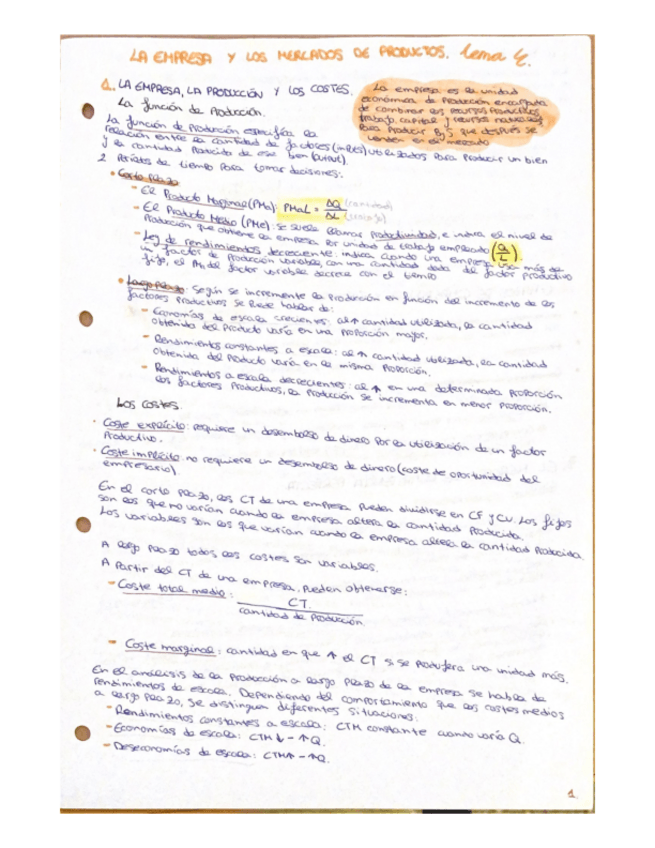 LA EMPRESA Y LOS MERCADOS DE PRODUCTOS. Tema 4.
1. LA EMPRESA, LA PRODUCCIÓN Y LOS COSTES.
La empresa es la unidad
económica de producción encargada
de combinar los recursos productivos,
trabajo, capital y recursos naturales
para producir ByS que después se
venden en el mercado
La función de Producción.
La función de Producción especifica la
relación entre la cantidad de factores (inputs) utilizados para producir un bien
y la cantidad producida de ese bien (output).
2 Períodos de tiempo para tomar decisiones:
• Corto plazo
- El Producto Marginal (PMa): PMaL = ΔQ (cantidad) / ΔL (trabajo)
- El Producto Medio (PMe): se suele llamar productividad, e indica el nivel de
producción que obtiene la empresa por unidad de trabajo empleado (Q/L).
- Ley de rendimientos decreciente: indica cuando una empresa usa más de
un factor de producción variable, con una cantidad dada del factor productivo
fijo, el PM del factor variable decrece con el tiempo
• Largo plazo: según se incremente la producción en función del incremento de los
factores productivos se puede hablar de:
- Economías de escala crecientes: al ↑ cantidad utilizada, la cantidad
obtenida del producto varía en una proporción mayor.
- Rendimientos constantes a escala: al ↑ cantidad utilizada, la cantidad
obtenida del producto varía en la misma proporción.
- Rendimientos a escala decrecientes: al ↑ en una determinada proporción
los factores productivos, la producción se incrementa en menor proporción.
Los costes.
• Coste explícito: requiere un desembolso de dinero por la utilización de un factor
productivo.
• Coste implícito: no requiere un desembolso de dinero (coste de oportunidad del
empresario)
En el corto plazo, los CT de una empresa pueden dividirse en CF y CV. Los fijos
son los que no varían cuando la empresa altera la cantidad producida.
Los variables son los que varían cuando la empresa altera la cantidad producida.
A largo plazo todos los costes son variables.
A partir del CT de una empresa, pueden obtenerse:
- Coste total medio: CT. / cantidad de producción
- Coste marginal: cantidad en que ↑ el CT si se produjera una unidad más.
En el análisis de la producción a largo plazo de la empresa se habla de
rendimientos de escala. Dependiendo del comportamiento que los costes medios
a largo plazo, se distinguen diferentes situaciones:
- Rendimientos constantes a escala: CTM constante cuando varía Q.
- Economías de escala: CTM↓ - ↑Q.
- Deseconomías de escala: CTM↑ - ↑Q.
1.